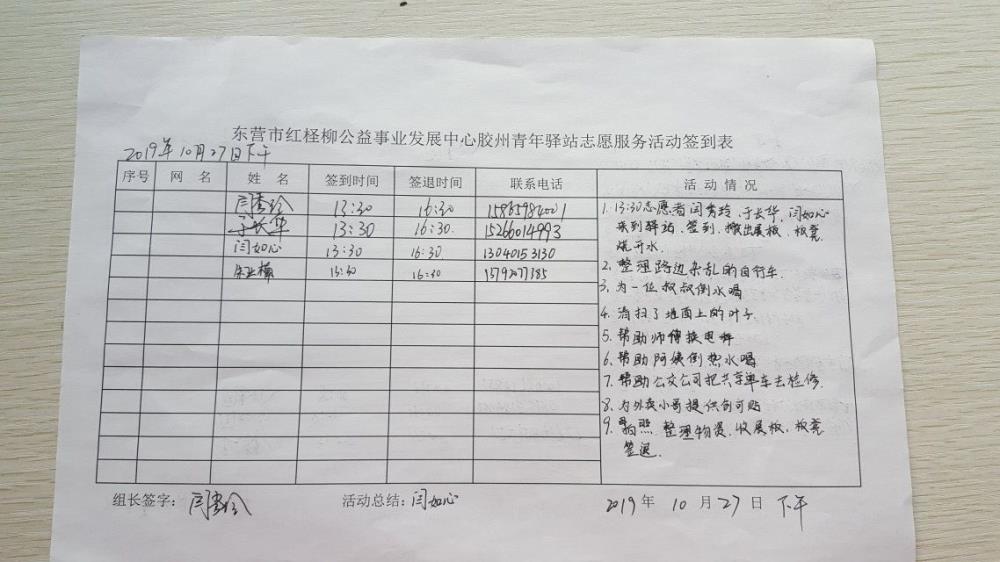 东营市红柽柳公益事业发展中心胶州青年驿站志愿服务活动签到表
2019年10月27日下午
序号 网 名 姓 名 签到时间 签退时间 联系电话 活 动 情 况
闫秀玲 13:30 16:30
于长华 13:30 16:30. 15266014993
闫如心 13:30 16:30. 13040153130
13:30 16:30
1. 13:30志愿者闫秀玲、于长华、闫如心
来到驿站、签到、搬出展板、板凳
烧开水.
2. 整理路边杂乱的自行车.
3. 为一位叔叔倒水喝
4. 清扫了地面上的叶子
5. 帮助师傅换电
6. 帮助阿姨倒热水喝
7. 帮助公交公司把共享单车去检修.
8. 为外卖小哥提供创可贴
9. 拍照 整理物资、收展板、板凳
签退.
组长签字：闫秀玲 活动总结：闫如心 2019年 10月27日 下午